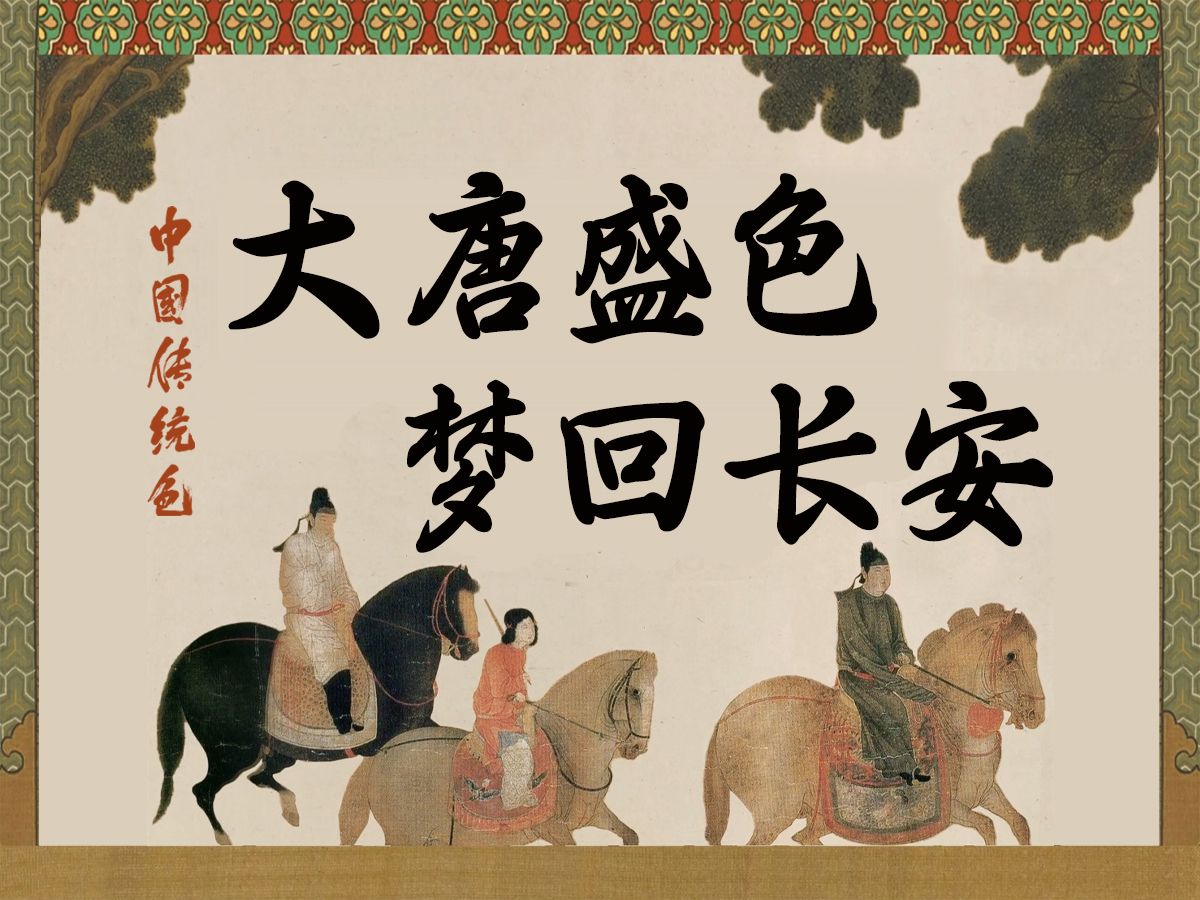 大唐盛色
梦回长安
中国传统色